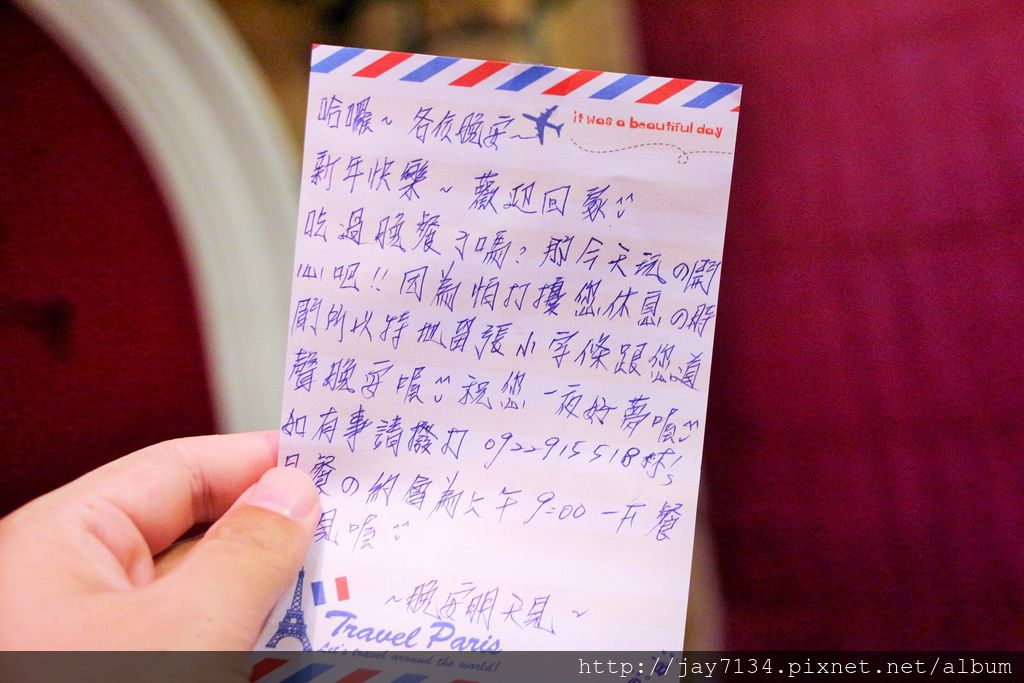 it was a beautiful day
哈囉~ 各位晚安~
新年快樂~ 歡迎回家
吃過晚餐了嗎? 那今天玩の開
心吧!! 因為怕打擾您休息の時
間所以特地留張小字條跟您道
聲晚安唷 祝您一夜好夢唷
如有事請撥打 0922915518林
早餐の約會為上午9:00 一F餐
見喔
~晚安明天見~
Travel Paris
Let's travel around the world!
http://jay7134.pixnet.net/album